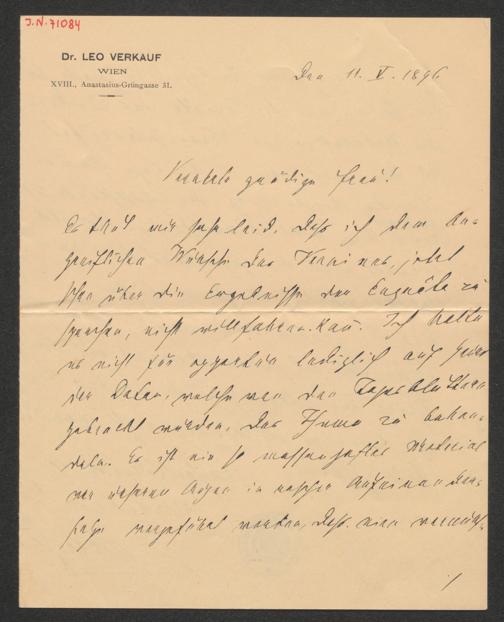 J.N. 71084
Dr. LEO VERKAUF
WIEN
XVIII., Anastasius-Grüngasse 31.
Den 11. V. 1896
Verehrte gnädige Frau!
Es thut mir sehr leid, dass ich dem be-
greiflichen Wunsche des Vereines, jetzt
schon über die Ergebnisse der Enquête zu
sprechen, nicht willfahren kann. Ich halte
es nicht für opportun lediglich auf Grund
der Daten, welche von den Tagesblättern
gebracht wurden, das Thema zu behan-
deln. Es ist ein so massenhaftes Material
vor unseren Augen in rascher Aufeinander-
folge vorgeführt worden, dass eine